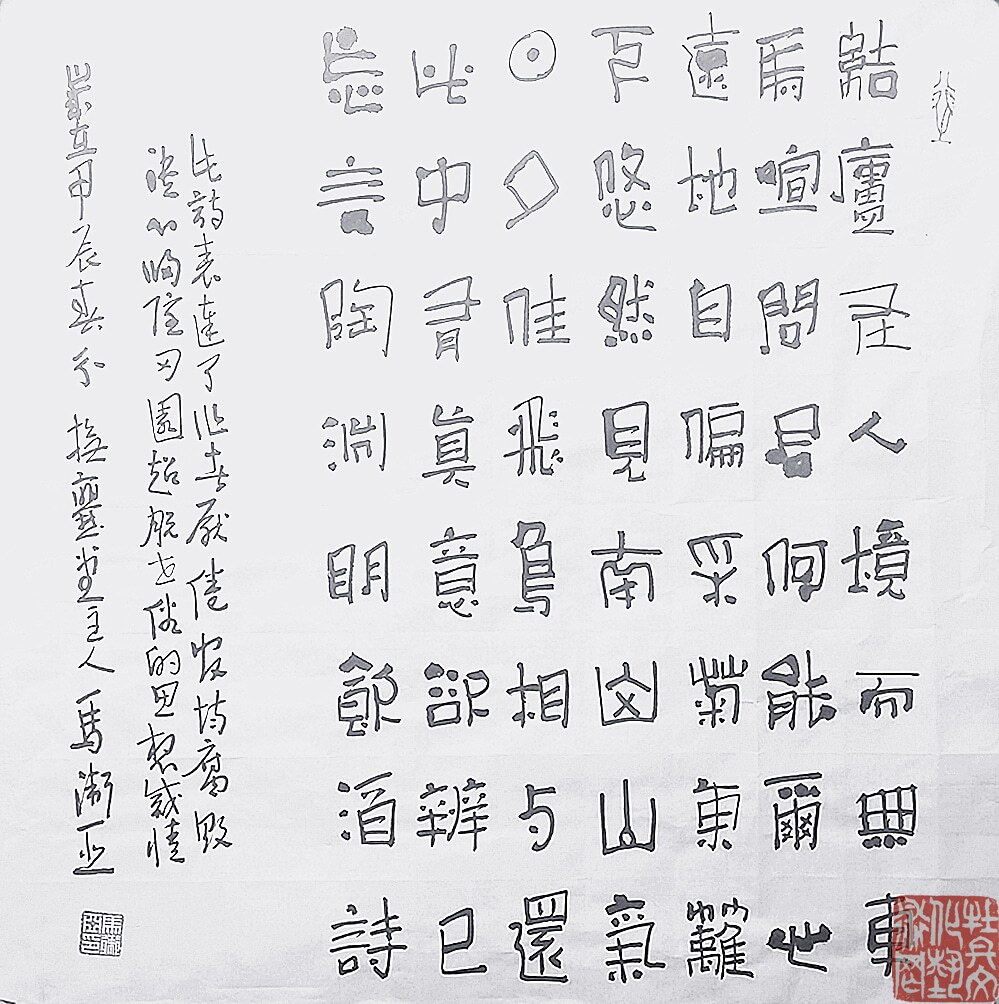 結廬在人境而無車
馬喧問君何能爾心
遠地自偏采菊東籬
下悠然見南山山氣
日夕佳飛鳥相与還
此中有真意欲辨已
忘言陶淵明飲酒詩
此詩表達了作者厭倦官場腐敗
决心歸隱田園超脱世俗的思想感情
歲在甲辰春分 堂主人馬